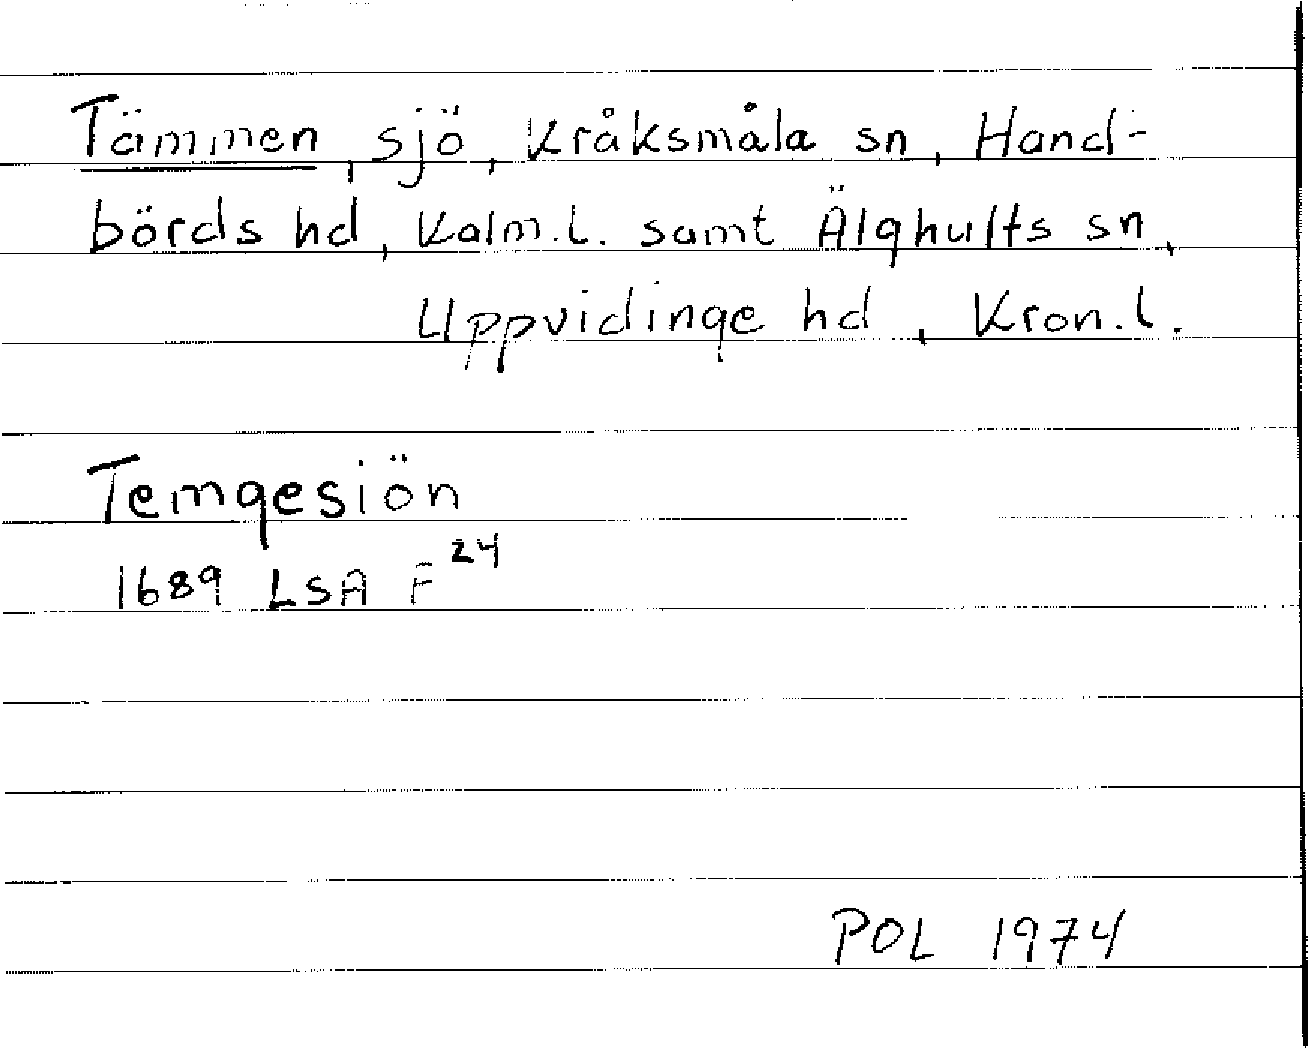 Tämmen, sjö, Kråksmåla sn, Hand-
börds hd, Kalm.l. samt Älghults sn,
Uppvidinge hd, Kron.l.
Temgesiön
1689 LSA F²⁴
POL 1974